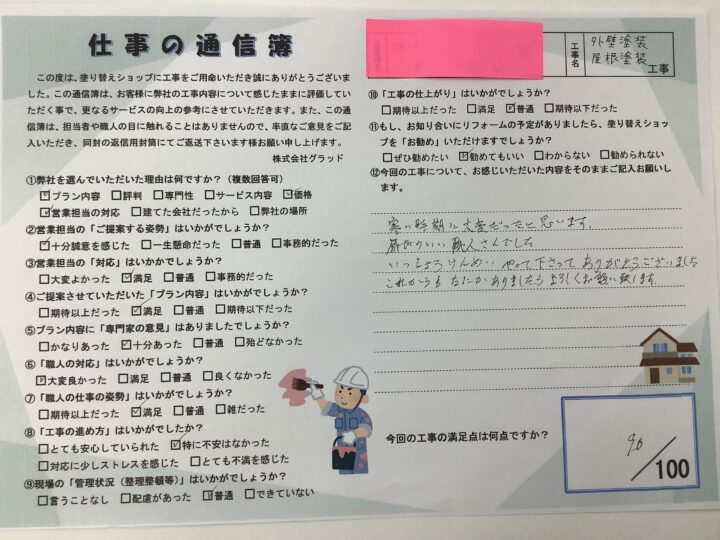 仕事の通信簿
この度は、塗り替えショップに工事をご用命いただき誠にありがとうございま
した。この通信簿は、お客様に弊社の工事内容について感じたままに評価してい
ただく事で、更なるサービスの向上の参考にさせていただきます。また、この通
信簿は、担当者や職人の目に触れることはありませんので、率直なご意見をご記
入いただき、同封の返信用封筒にてご返送下さいます様お願い申し上げます。
株式会社グラッド
①弊社を選んでいただいた理由は何ですか?(複数回答可)
☑プラン内容 □評判 □専門性 □サービス内容 ☑価格
☑営業担当の対応 □建てた会社だったから □弊社の場所
②営業担当の「ご提案する姿勢」はいかがでしょうか?
☑十分誠意を感じた □一生懸命だった □普通 □事務的だった
③営業担当の「対応」はいかかでしょうか?
□大変よかった ☑満足 □普通 □事務的だった
④ご提案させていただいた「プラン内容」はいかがでしょうか?
□期待以上だった ☑満足 □普通 □期待以下だった
⑤プラン内容に「専門家の意見」はありましたでしょうか?
□かなりあった ☑十分あった □普通 □殆どなかった
⑥「職人の対応」はいかがでしょうか?
☑大変良かった □満足 □普通 □良くなかった
⑦「職人の仕事の姿勢」はいかがでしょうか?
□期待以上だった ☑満足 □普通 □雑だった
⑧「工事の進め方」はいかがでしたか?
□とても安心していられた ☑特に不安はなかった
□対応に少しストレスを感じた □とても不満を感じた
⑨現場の「管理状況(整理整頓等)」はいかがでしょうか?
□言うことなし □配慮があった ☑普通 □できていない
工事名
外壁塗装
屋根塗装 工事
⑩「工事の仕上がり」はいかがでしょうか?
□期待以上だった □満足 ☑普通 □期待以下だった
⑪もし、お知り合いにリフォームの予定がありましたら、塗り替えショッ
プを「お勧め」いただけますでしょうか?
□ぜひ勧めたい ☑勧めてもいい □わからない □勧められない
⑫今回の工事について、お感じいただいた内容をそのままご記入お願いし
ます。
寒い時期に大変だったと思います。
感じのいい職人さんでした
いっしょうけんめい やって下さって ありがとうございました
これからも なにかありましたら よろしくお願い致します
今回の工事の満足点は何点ですか?
90/100